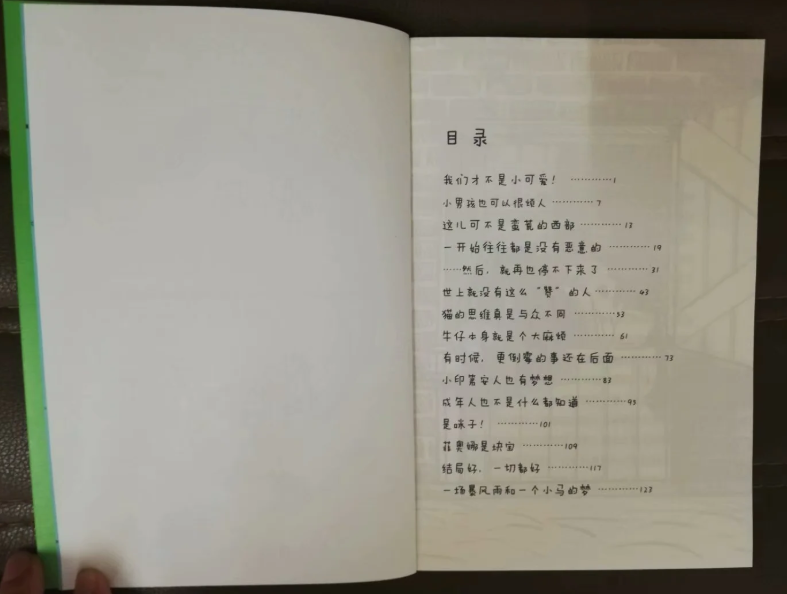 目录
我们才不是小可爱！ …………1
小男孩也可以很烦人 …………7
这儿可不是蛮荒的西部 …………13
一开始往往都是没有恶意的 …………19
……然后，就再也停不下来了 …………31
世上就没有这么“赞”的人 …………43
猫的思维真是与众不同 …………53
牛仔本身就是个大麻烦 …………61
有时候，更倒霉的事还在后面 …………73
小印第安人也有梦想 …………83
成年人也不是什么都知道 …………95
是妹子！ …………101
菲奥娜是块宝 …………109
结局好，一切都好 …………117
一场暴风雨和一个小马的梦 …………127